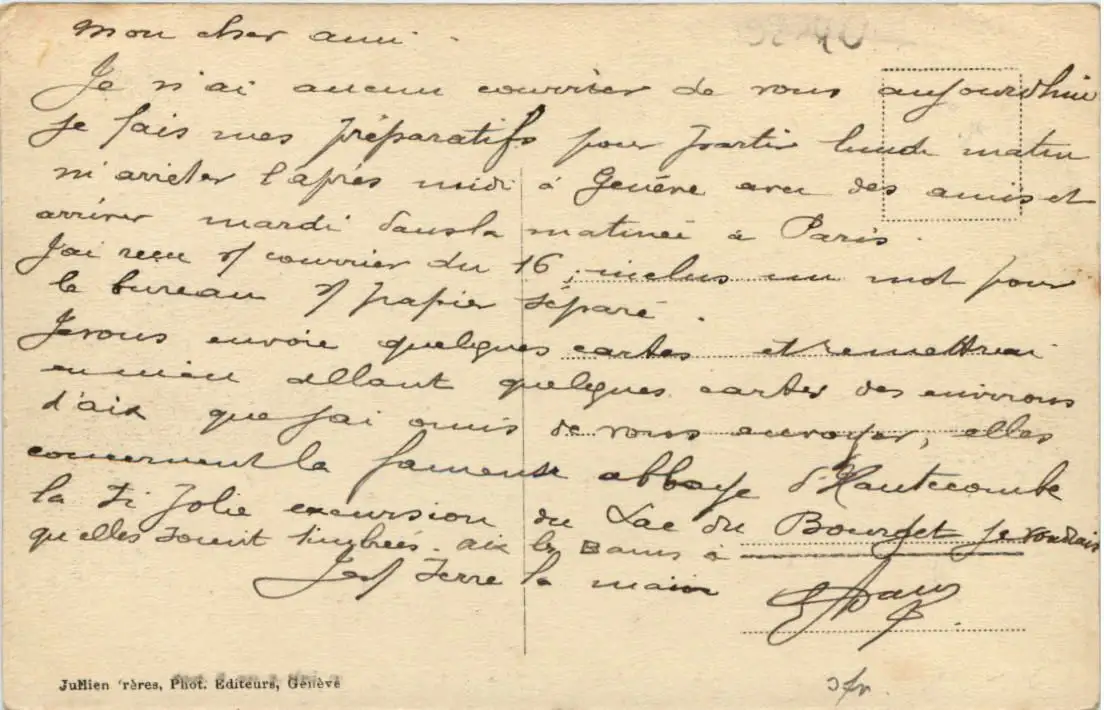 mon cher ami.
Je n'ai aucun courrier de vous aujourd'hui
je fais mes préparatifs pour partir lundi matin
m'arrêter l'après midi à Genève avec des amis et
arriver mardi dans la matinée à Paris.
J'ai reçu v/ courrier du 16, inclus un mot pour
le bureau s/ papier séparé.
Je vous envoie quelques cartes et remettrai
en m'en allant quelques cartes des environs
d'aix que j'ai omis de vous envoyer, elles
concernent la fameuse abbaye d'Hautecombe
la si jolie excursion du Lac du Bourget je voudrais
qu'elles soient timbrées aix les Bains à
serre la main
Jullien rères, Phot. Editeurs, Genève
3fr